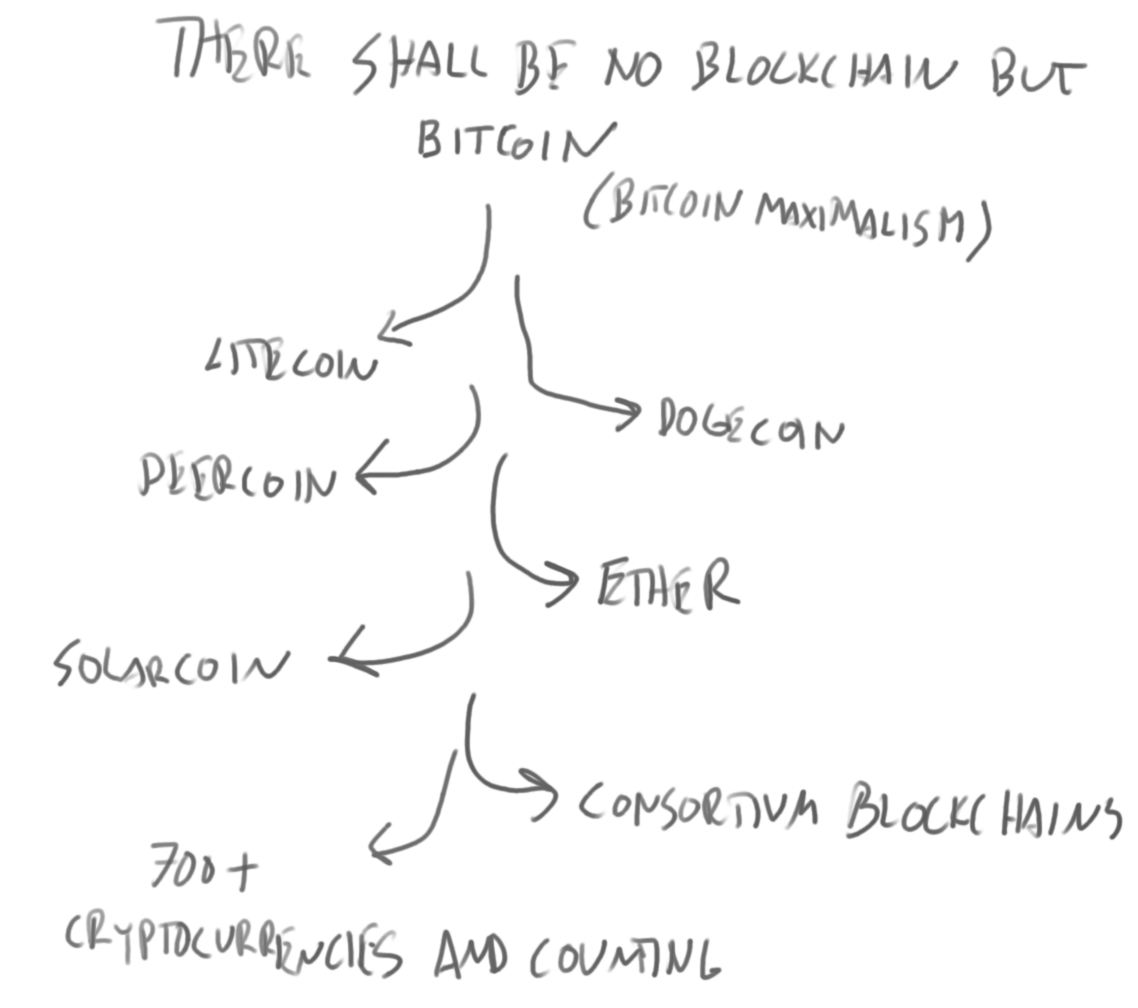 THERE SHALL BE NO BLOCKCHAIN BUT
BITCOIN
(BITCOIN MAXIMALISM)
LITECOIN
DOGECOIN
PEERCOIN
ETHER
SOLARCOIN
CONSORTIUM BLOCKCHAINS
700+
CRYPTOCURRENCIES AND COUNTING